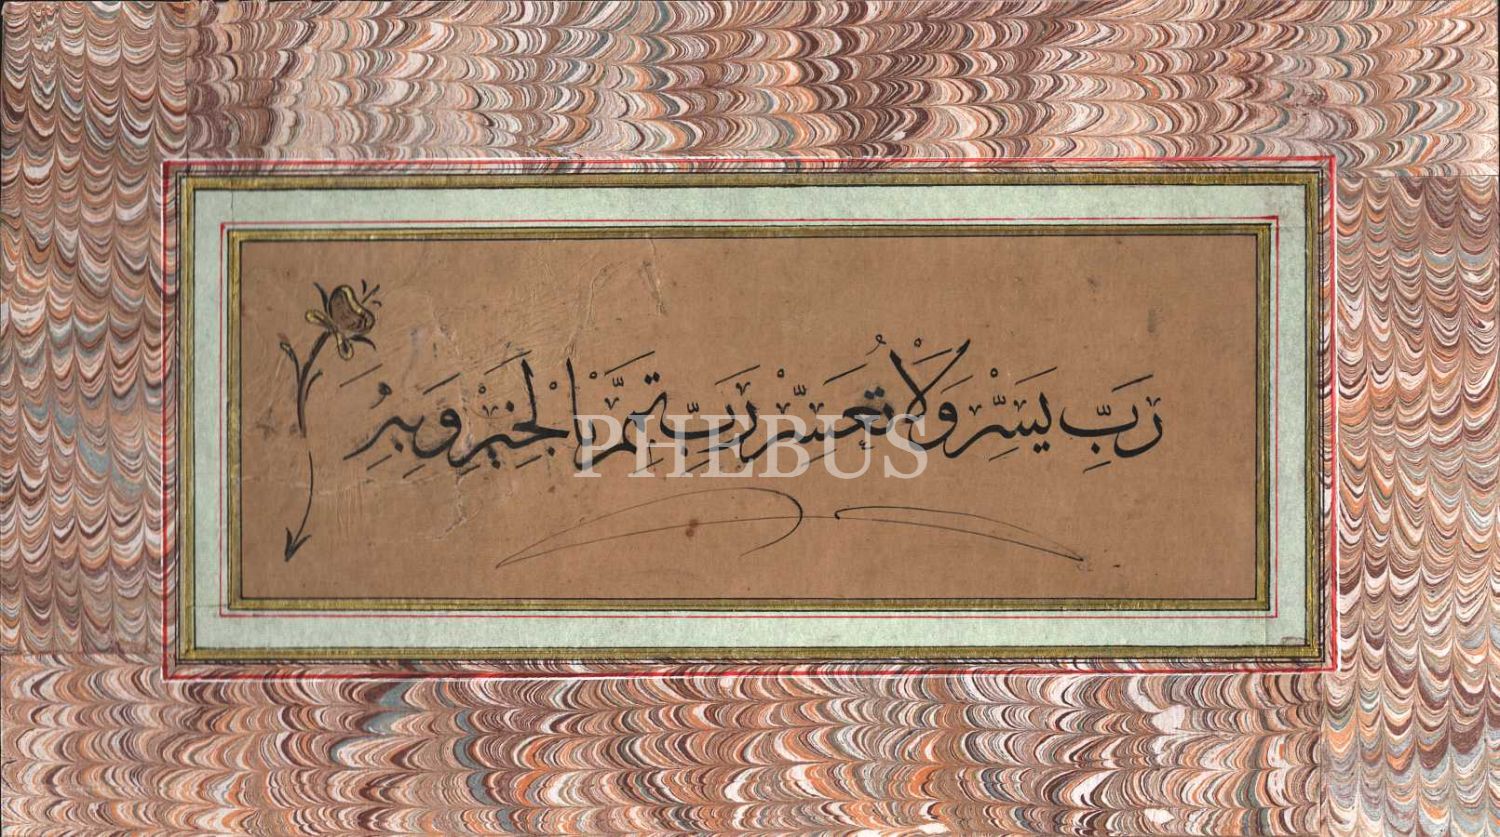 رَبِّ يَسِّرْ وَلَا تُعَسِّرْ رَبِّ تَمِّمْ بِالْخَيْرِ وَبِهِ
PHEBUS